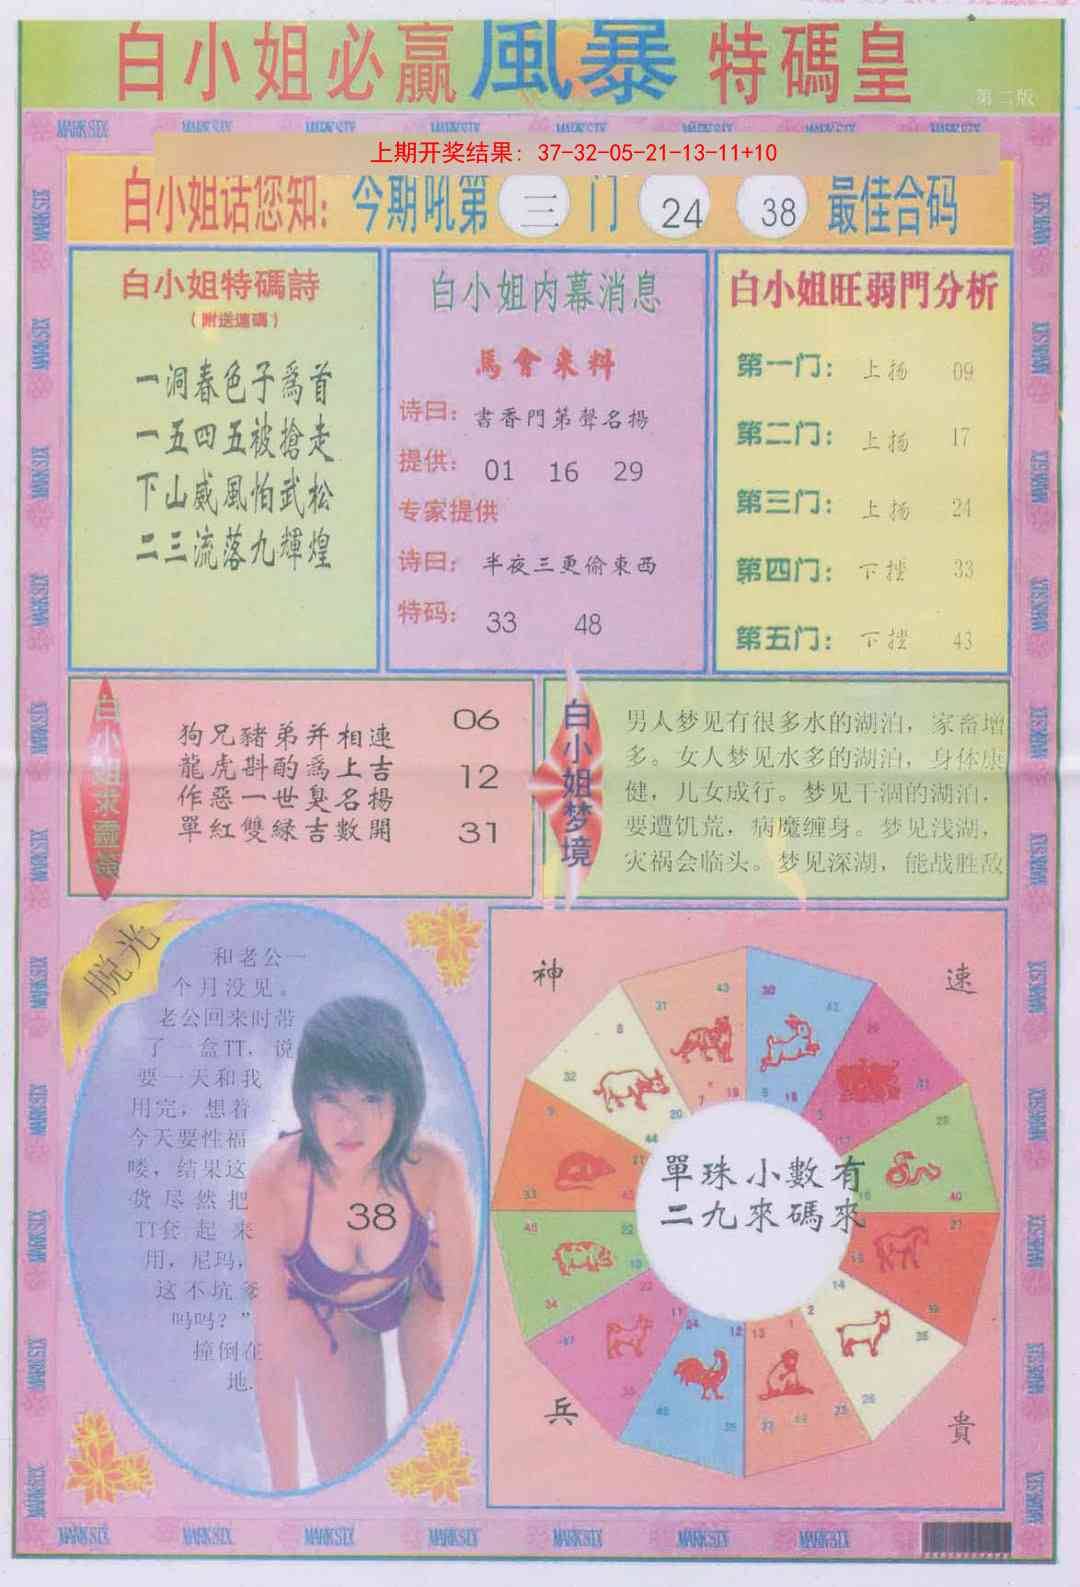 白小姐必贏風暴特碼皇
第二版
MARK SIX MARK SIX MARK SIX MARK SIX MARK SIX MARK SIX MARK SIX MARK SIX
上期开奖结果: 37-32-05-21-13-11+10
白小姐话您知: 今期吼第 三 门 24 38 最佳合码
白小姐特碼詩
(附送連碼)
一洞春色子爲首
一五四五被搶走
下山威風怕武松
二三流落九輝煌
白小姐内幕消息
馬會來料
诗曰: 書香門第聲名揚
提供: 01 16 29
专家提供
诗曰: 半夜三更偷東西
特码: 33 48
白小姐旺弱門分析
第一门: 上扬 09
第二门: 上扬 17
第三门: 上扬 24
第四门: 下挫 33
第五门: 下挫 43
白小姐求靈簽
狗兄豬弟并相連 06
龍虎斟酌爲上吉 12
作惡一世臭名揚
單紅雙緑吉數開 31
白小姐梦境
男人梦见有很多水的湖泊，家畜增
多。女人梦见水多的湖泊，身体康
健，儿女成行。梦见干涸的湖泊，
要遭饥荒，病魔缠身。梦见浅湖，
灾祸会临头。梦见深湖，能战胜敌
脱光
和老公一
个月没见。
老公回来时带
了一盒TT，说
要一天和我
用完，想着
今天要性福
喽，结果这
货尽然把
TT套起来
用，尼玛，
这不坑爹
吗吗？”
撞倒在
地.
38
神
速
單珠小數有
二九來碼來
兵
貴
MARK SIX MARK SIX MARK SIX MARK SIX MARK SIX MARK SIX MARK SIX